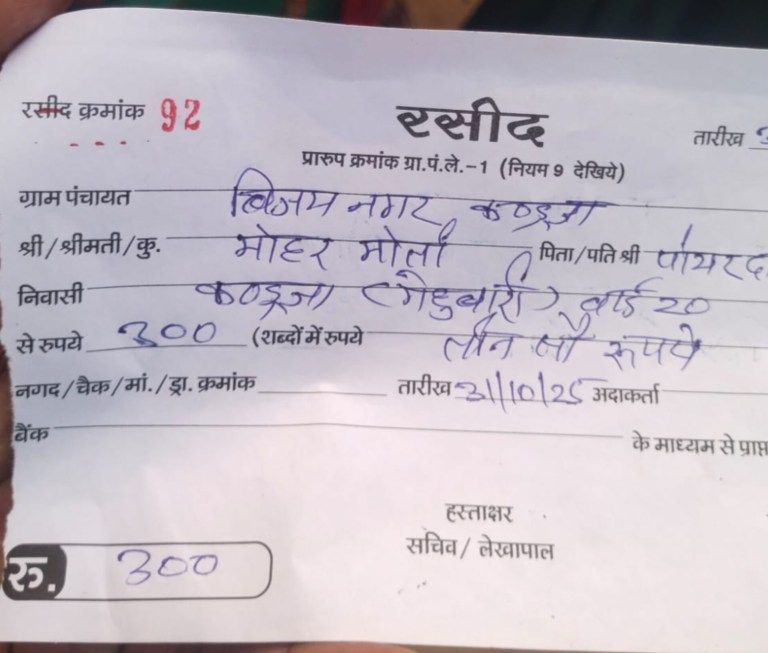 रसीद क्रमांक 92
रसीद
तारीख 3
प्रारुप क्रमांक ग्रा.पं.ले.-1 (नियम 9 देखिये)
ग्राम पंचायत विजय नगर, कण्ड्रजा
श्री/श्रीमती/कु. मोहर पिता/पति श्री
निवासी कण्ड्रजा वार्ड 20
से रुपये 300 (शब्दों में रुपये तीन सौ रूपये
नगद/चैक/मां./ड्रा. क्रमांक तारीख 31/10/25 अदाकर्ता
बैंक के माध्यम से प्राप्त
हस्ताक्षर
सचिव/ लेखापाल
रु. 300